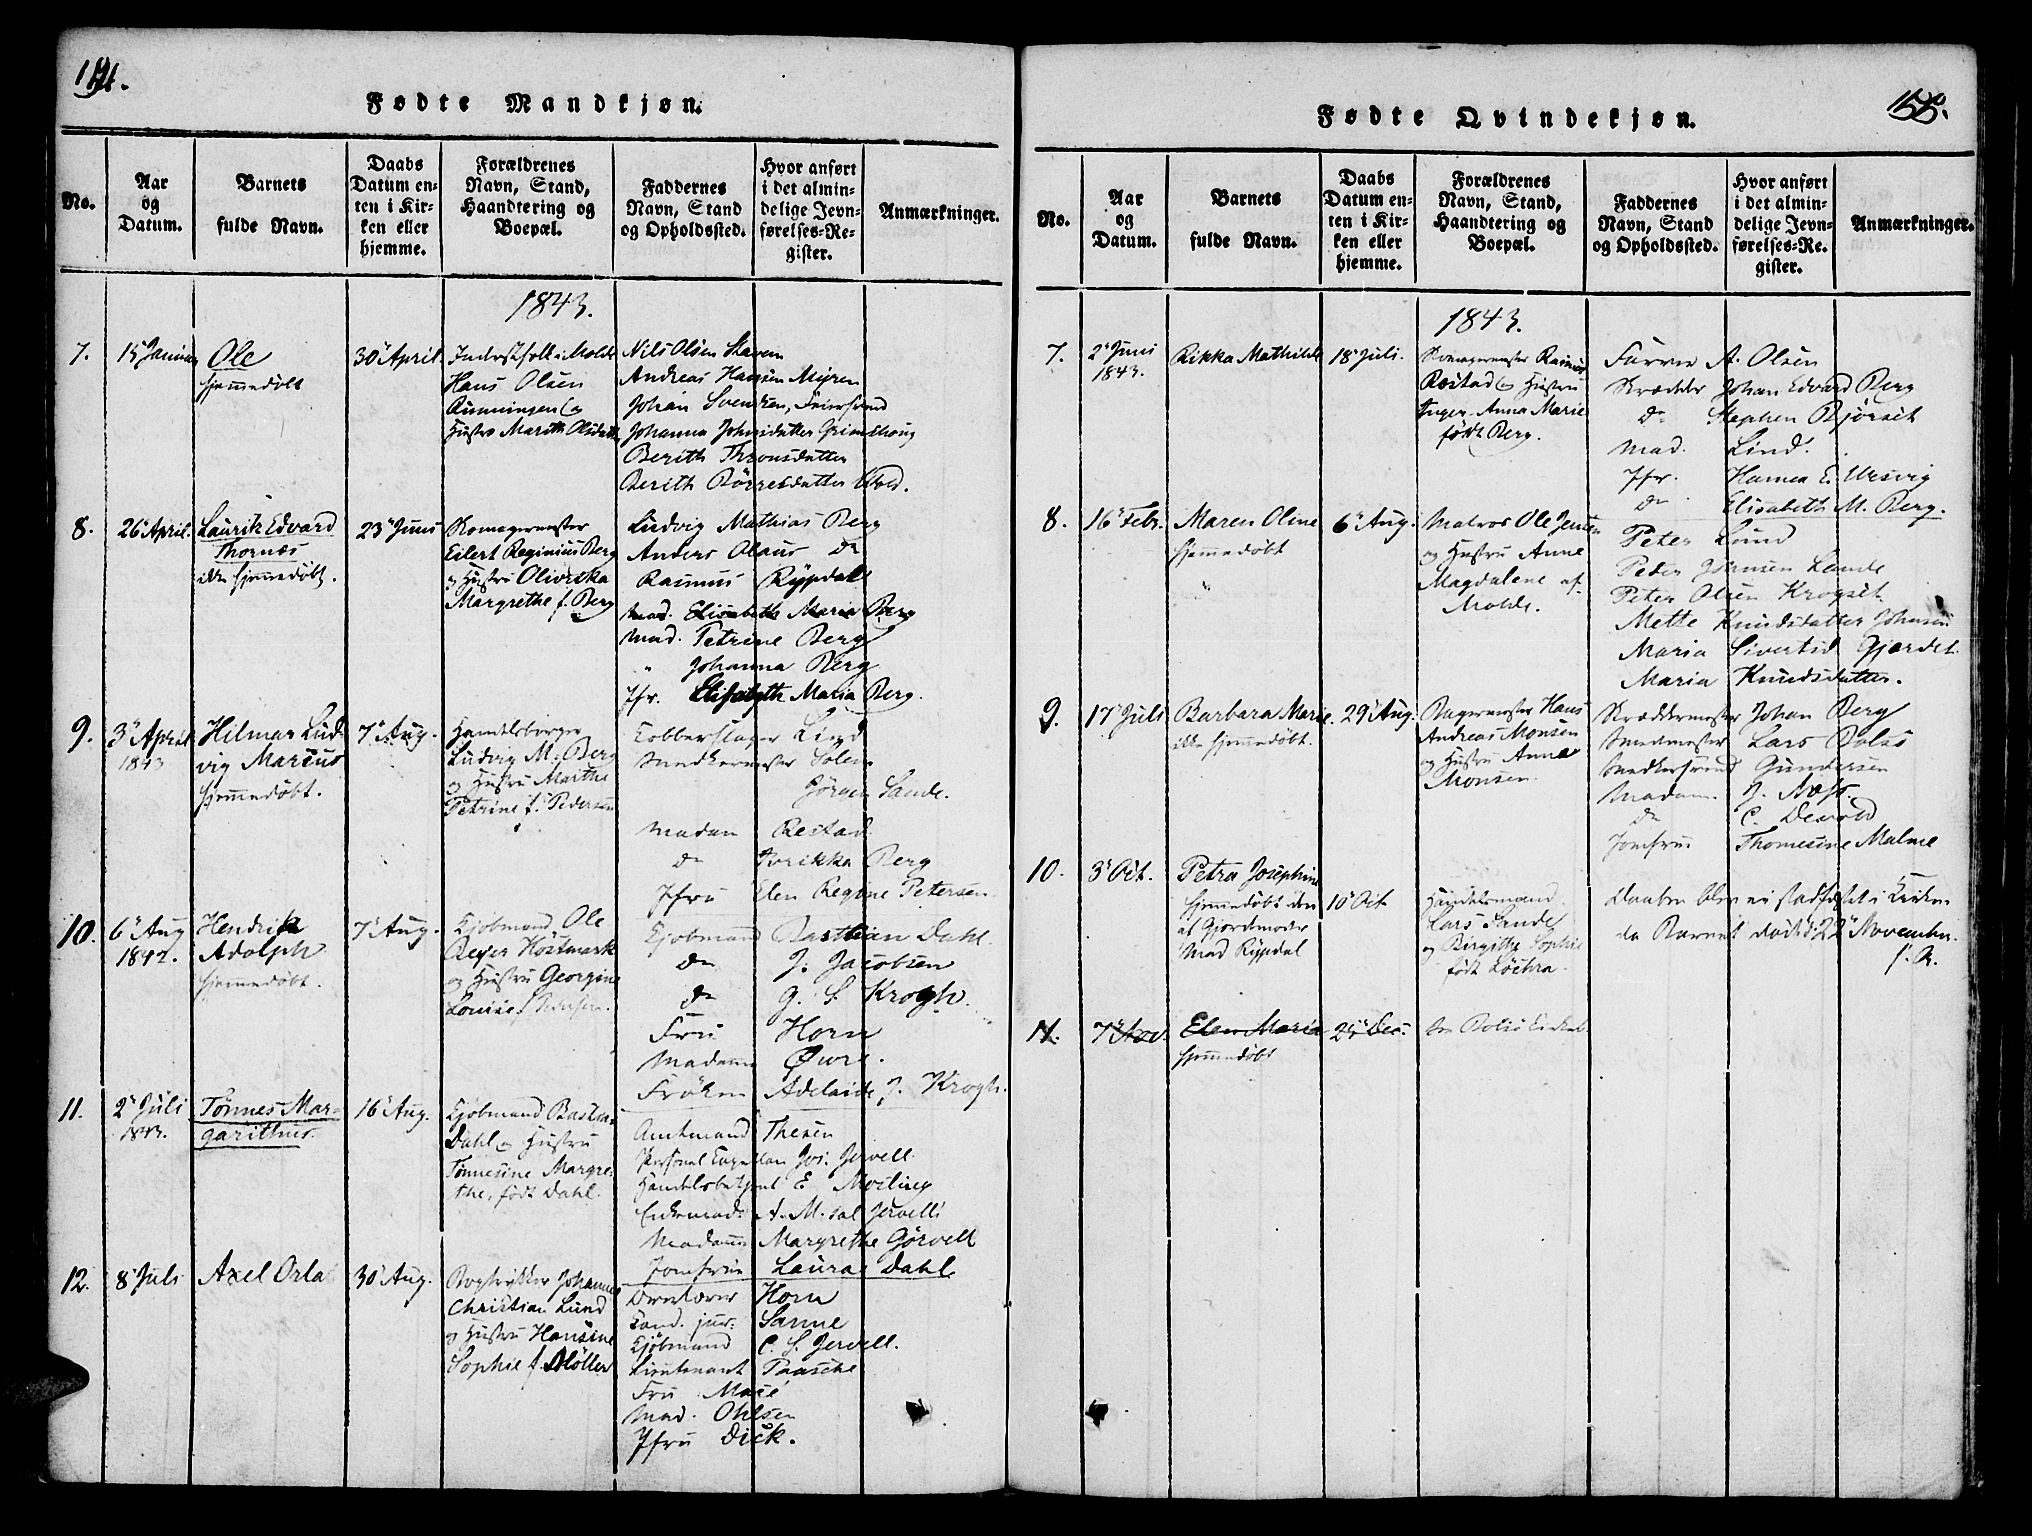 Fødte Mandkjøn.
No.
Aar og Datum.
Barnets fulde Navn.
Daabs Datum enten i Kirken eller hjemme.
Forældrenes Navn, Stand, Haandtering og Boepæl.
Faddernes Navn, Stand og Opholdssted.
Hvor anført i det almindelige Jevnførelses-Register.
Anmærkninger.
1843.
7.
15 Januar
Ole
hjemmedøbt
30 April.
Hans Olsen
Hustro Marith Olsdatter
Nils Olsen
Andreas Hansen Myren
Johan Svendsen,
Johanna Johnsdatter
Berith Thronsdatter
Berith Børresdatter Wold.
8.
26 April.
Laurits Edvard
Thornæs
ikke hjemmedøbt.
23 Juni
Skomagermester
Eilert Reginius Berg
og Hustru Oliviska
Margrethe f. Berg
Ludvig Mathias Berg
Anders Olaus do
Rasmus Rypdal
Mad. Elisabeth Maria Berg
Mad. Petrine Berg
" Johanna Berg
Jfr. Elisabeth Maria Berg.
9.
3 April
1843
Hilmar Lud-
vig Marcus
hjemmedøbt.
7 Aug.
Handelsborger
Ludvig M. Berg
og Hustru Marthe
Petrine f. Pedersen
Kobberslager Lind
Snedkermester Solem
Jørgen Sande.
Madam Restad
do Fredrikka Berg
Jfru Elen Regine Petersen
10.
6 Aug
1842.
Hendrik
Adolph
hjemmedøbt.
7 Aug.
Kjøbmand Ole
Beyer Høstmark
og Hustru Georgine
Louise f.
Kjøbmand Basthian Dahl.
do J. Jacobsen
do G. S. Krogh.
Fru Horn
Madam Øwre.
Frøken Adelaide J. Krogh.
11.
2 Juli
1843.
Tønnes Mar-
garithus.
16 Aug.
Kjøbmand Bastian
Dahl og Hustru
Tønnesine Margre-
the, født Dahl.
Amtmand Thesen
Personel Capellan Jos. Jervell.
Handelsbetjent E Møsling
A. M. sal Jervell
Madam Margrethe Gørvell
Jomfrue Laura Dahl
12.
8 Juli
Axel Orla
30 Aug.
Bogtrykker Johannes
Christian Lund
og Hustru Hansine
Sophie f. Møller
Overlærer Horn
Cand. jur. Sanne
Kjøbmand C. S. Jervell.
Lieutenant Paasche
Fru Macé
Mad. Ohlsen
Jfru Dick.
155.
Fødte Qvindekjøn.
No.
Aar og Datum.
Barnets fulde Navn.
Daabs Datum enten i Kirken eller hjemme.
Forældrenes Navn, Stand, Haandtering og Boepæl.
Faddernes Navn, Stand og Opholdssted.
Hvor anført i det almindelige Jevnførelses-Register.
Anmærkninger.
1843.
7.
2 Juni
1843.
Rikka Mathilde
18 Juli.
Skomagermester Rasmus
Røstad og Hustru
Inger Anna Marie
født Berg.
Farver A. Olsen
Skrædder Johan Edvard Berg
do Stephen Bjørset
Mad. Lind.
Jfr. Hanna E. Ursvig
do Elisabeth M. Berg.
8.
16 Febr.
Maren Oline
hjemmedøbt
6 Aug.
Matros Ole Jensen
og Hustru Anne
Magdalene af
Molde.
Peter Lund
Peder Johnsen Sande
Peter Olsen Krogset
Mette Knudsdatter Johnsen
Maria Sivertsd Gjerdet
Maria Knudsdatter.
9.
17 Juli
Barbara Marie
ikke hjemmedøbt.
29 Aug.
Bagermester Hans
Andreas Monsen
og Hustru Anna
Monsen.
Skræddermester Johan Berg
Smedmester Lars Bolsø
Snedkersvend Gundersen
Madam. J. Næss.
do C. Devold
Jomfru Thomesine Malme
10.
3 Oct.
Petra Josephine
hjemmedøbt den
af Gjordemoder
Mad Rypdal
10 Oct
Handelsmand
Lars Sande
og Birgithe Sophie
født Lochra.
Daaben blev ei stadfæstet i Kirken
da Barnet døde d. 22 November
11.
7 Nov.
Elen Maria
hjemmedøbt
25 Dec.